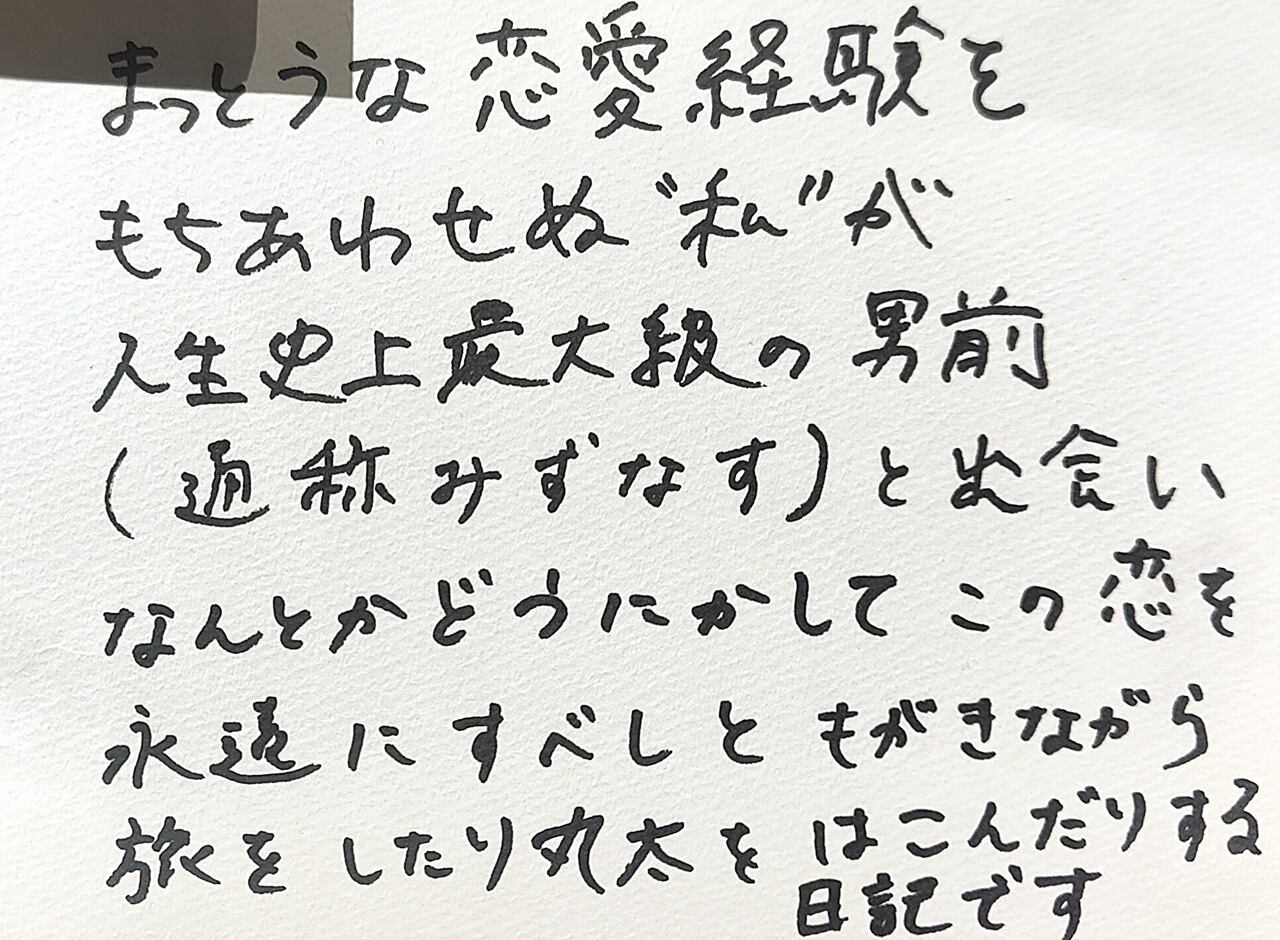 まっとうな恋愛経験を
もちあわせぬ〝私〟が
人生史上最大級の男前
(通称みずなす)と出会い
なんとかどうにかしてこの恋を
永遠にすべしともがきながら
旅をしたり丸太をはこんだりする
日記です